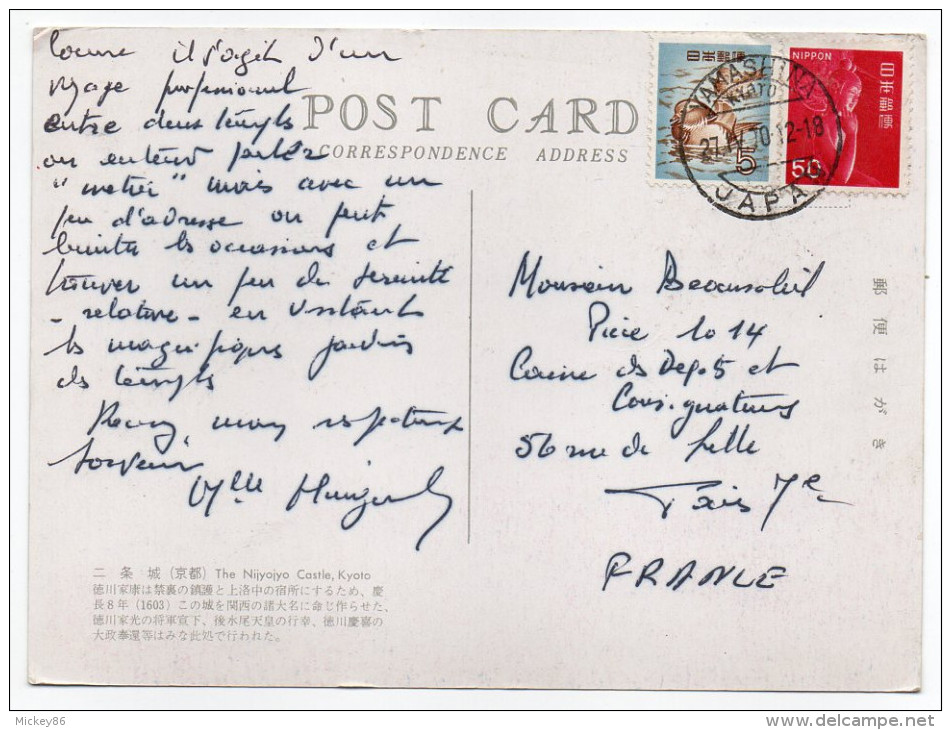 comme il s'agit d'un
voyage professionnel
entre deux temples
on entend parler
"métier" mais avec un
peu d'adresse on peut
les occasions et
trouver un peu de sérénité
- relative - en visitant
les magnifiques jardins
des temples
mon respectueux
souvenir
Mlle
POST CARD
CORRESPONDENCE ADDRESS
日本郵便
5
NIPPON
日本郵便
50
YAMASHINA
KYOTO
27.IV.70.12-18
JAPAN
郵便はがき
Monsieur Beausoleil
Pièce 1014
Caisse des Dépôts et
Consignations
56 rue de Lille
Paris 7e
FRANCE
二条城 (京都) The Nijyojyo Castle, Kyoto
徳川家康は禁裏の鎮護と上洛中の宿所にするため、慶
長8年 (1603) この城を関西の諸大名に命じ作らせた、
徳川家光の将軍宣下、後水尾天皇の行幸、徳川慶喜の
大政奉還等はみな此処で行われた。
Mickey86
www.delcampe.net